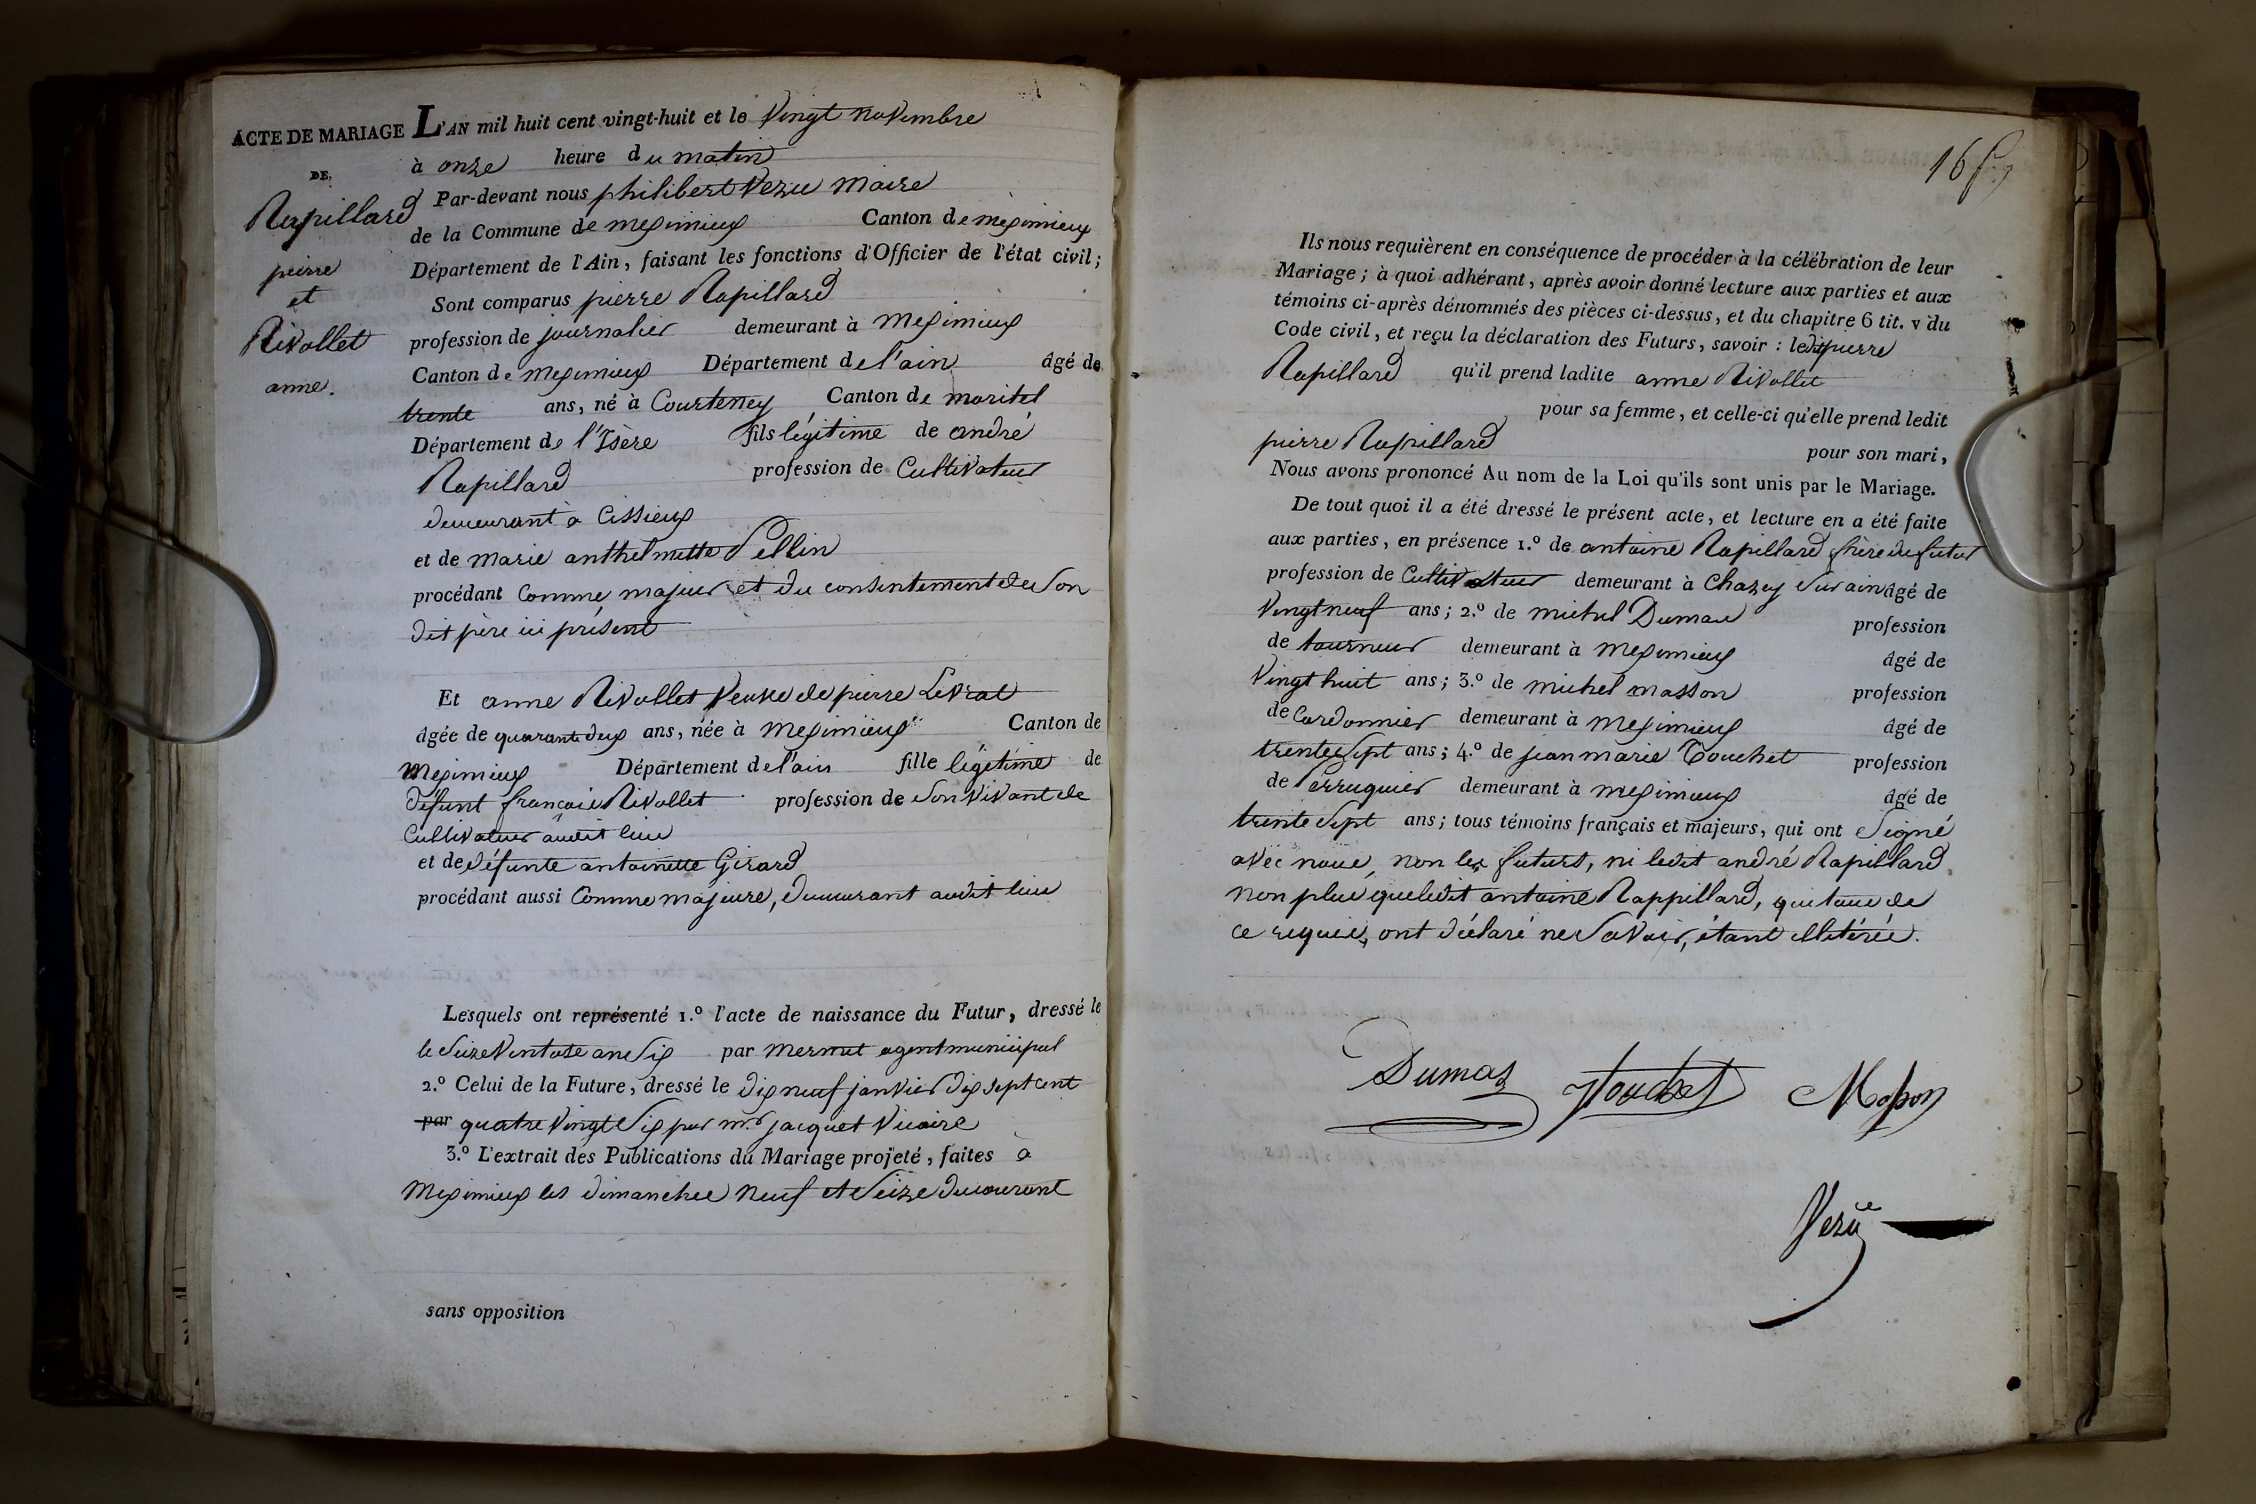 ACTE DE MARIAGE
DE
Rapillard
pierre
et
Rivollet
anne.
L'AN mil huit cent vingt-huit et le Vingt novembre
à onze heure du matin
Par-devant nous philibert Vezu Maire
de la Commune de meximieux Canton de meximieux
Département de l'Ain, faisant les fonctions d'Officier de l'état civil;
Sont comparus pierre Rapillard
profession de journalier demeurant à Meximieux
Canton de Meximieux Département de l'ain âgé de
trente ans, né à Courteney Canton de moritel
Département de l'Isère fils légitime de andré
Rapillard profession de Cultivateur
demeurant a Cissieux
et de marie anthelmette Pellin
procédant Comme majeur et du consentement de Son
dit père ici présent
Et anne Rivollet Veuve de pierre Levrat
âgée de quarante deux ans, née à Meximieux Canton de
Meximieux Département de l'ain fille légitime de
défunt françois Rivollet profession de Son vivant de
Cultivateur audit lieu
et de défunte antoinette Girard
procédant aussi Comme majeure, demeurant audit lieu
Lesquels ont représenté 1.º l'acte de naissance du Futur, dressé le
le Seize Ventose an Six par Mermet agent municipal
2.º Celui de la Future, dressé le dix neuf janvier dix sept cent
par quatre Vingt Six par mr. jacquet Vicaire
3.º L'extrait des Publications du Mariage projeté, faites à
Meximieux les dimanches neuf et Seize du courant
sans opposition
16
Ils nous requièrent en conséquence de procéder à la célébration de leur
Mariage; à quoi adhérant, après avoir donné lecture aux parties et aux
témoins ci-après dénommés des pièces ci-dessus, et du chapitre 6 tit. v du
Code civil, et reçu la déclaration des Futurs, savoir: ledit pierre
Rapillard qu'il prend ladite anne Rivollet
pour sa femme, et celle-ci qu'elle prend ledit
pierre Rapillard pour son mari,
Nous avons prononcé Au nom de la Loi qu'ils sont unis par le Mariage.
De tout quoi il a été dressé le présent acte, et lecture en a été faite
aux parties, en présence 1.º de antoine Rapillard frère du futur
profession de Cultivateur demeurant à Chazey Sur ain âgé de
Vingt neuf ans; 2.º de michel Dumas profession
de tourneur demeurant à Meximieux âgé de
Vingt huit ans; 3.º de michel masson profession
de Cordonnier demeurant à Meximieux âgé de
trente Sept ans; 4.º de jean marie Touchet profession
de Perruquier demeurant à meximieux âgé de
trente Sept ans; tous témoins français et majeurs, qui ont Signé
avec nous, non les futurs, ni ledit andré Rapillard
non plus que ledit antoine Rappillard, qui tous de
ce requis, ont déclaré ne Savoir, étant illitérés.
Dumas Touchet Masson
Vezu